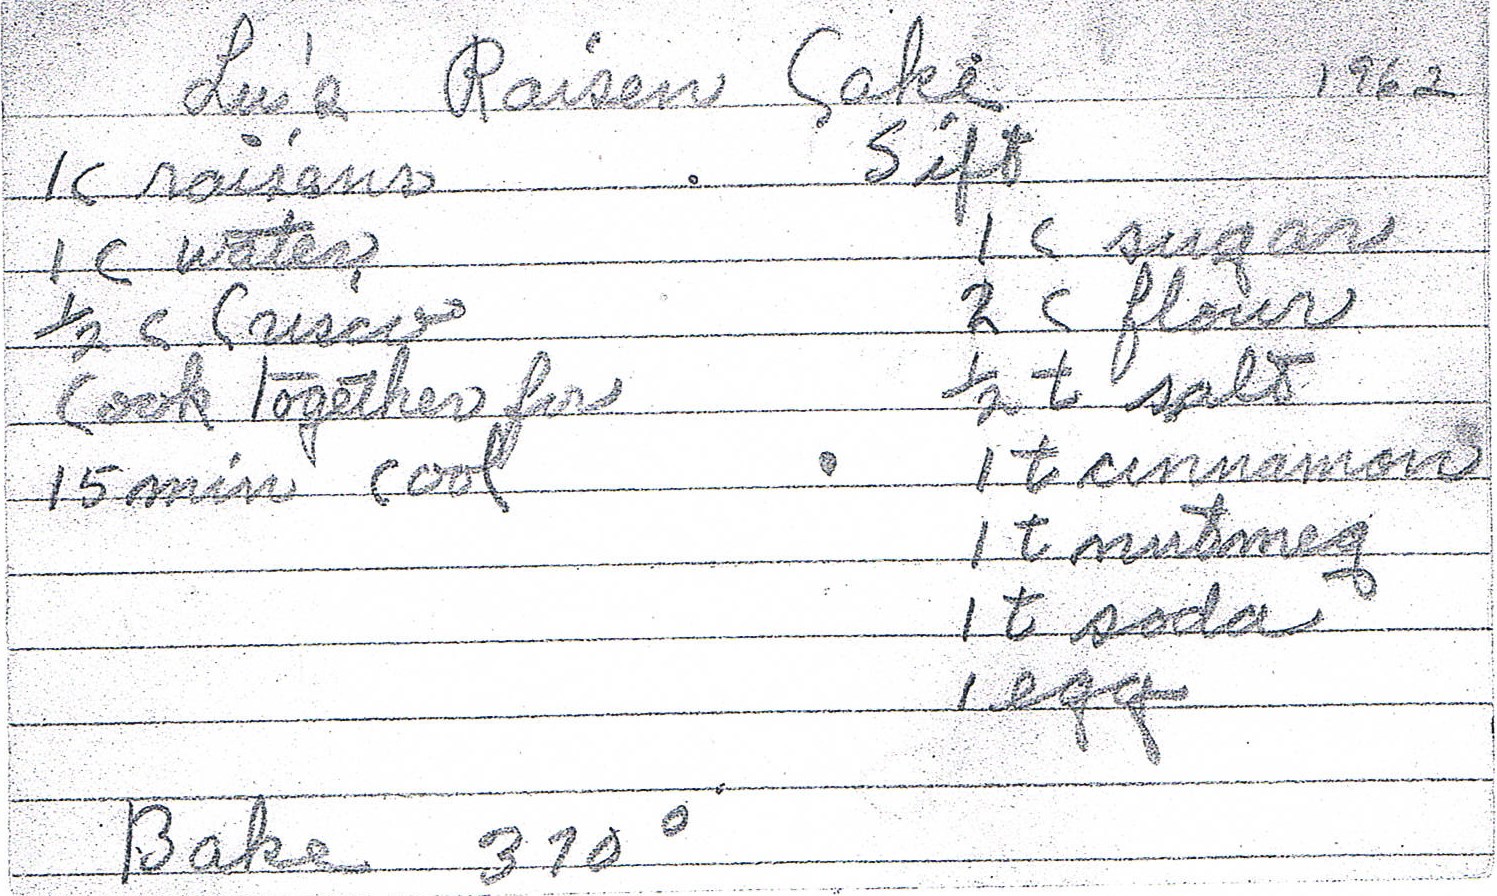 Lu's Raisen Cake 1962
1c raisens
1 c water
1/2 c Crisco
Cook together for
15 min cool
Sift
1 c sugar
2 c flour
1/2 t salt
1 t cinnamon
1 t nutmeg
1 t soda
1 egg
Bake 370°